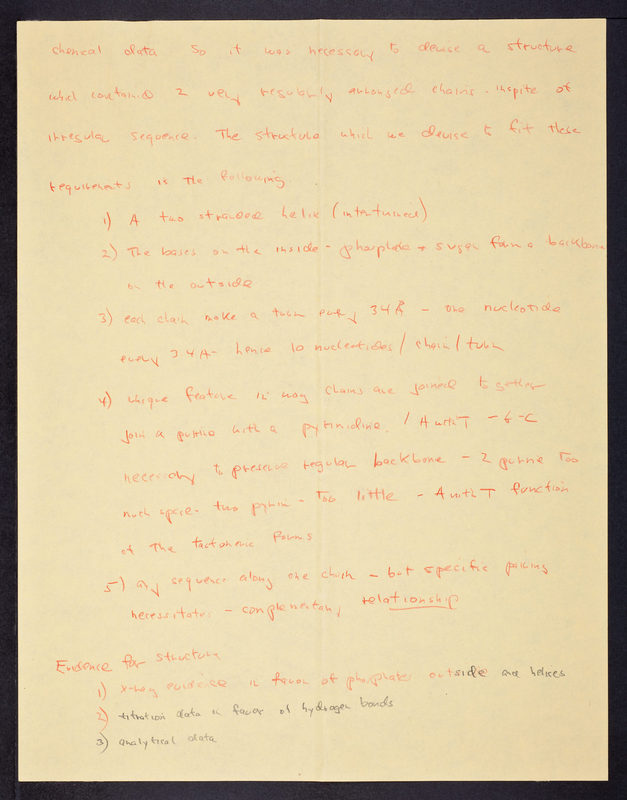 chemical data So it was necessary to devise a structure
which contained 2 very regularly arranged chains. inspite of
irregular sequence. The structure which we devise to fit these
requirements is the following.
1) A two stranded helix (intertwined)
2) The bases on the inside - phosphate + sugar form a backbone
on the outside
3) each chain make a turn every 34 Å - one nucleotide
every 3 4 A - hence 10 nucleotides / chain / turn
4) unique feature is way chains are joined together
join a purine with a pyrimidine. / A with T - G-C
necessary to preserve regular backbone - 2 purine too
much space - two pyrim - too little - A with T function
of the tautomeric forms
5) any sequence along one chain - but specific pairing
necessitates - complementary relationship
Evidence for structure
1) x-ray evidence in favor of phosphates outside and helices
2) titration data in favor of hydrogen bonds
3) analytical data